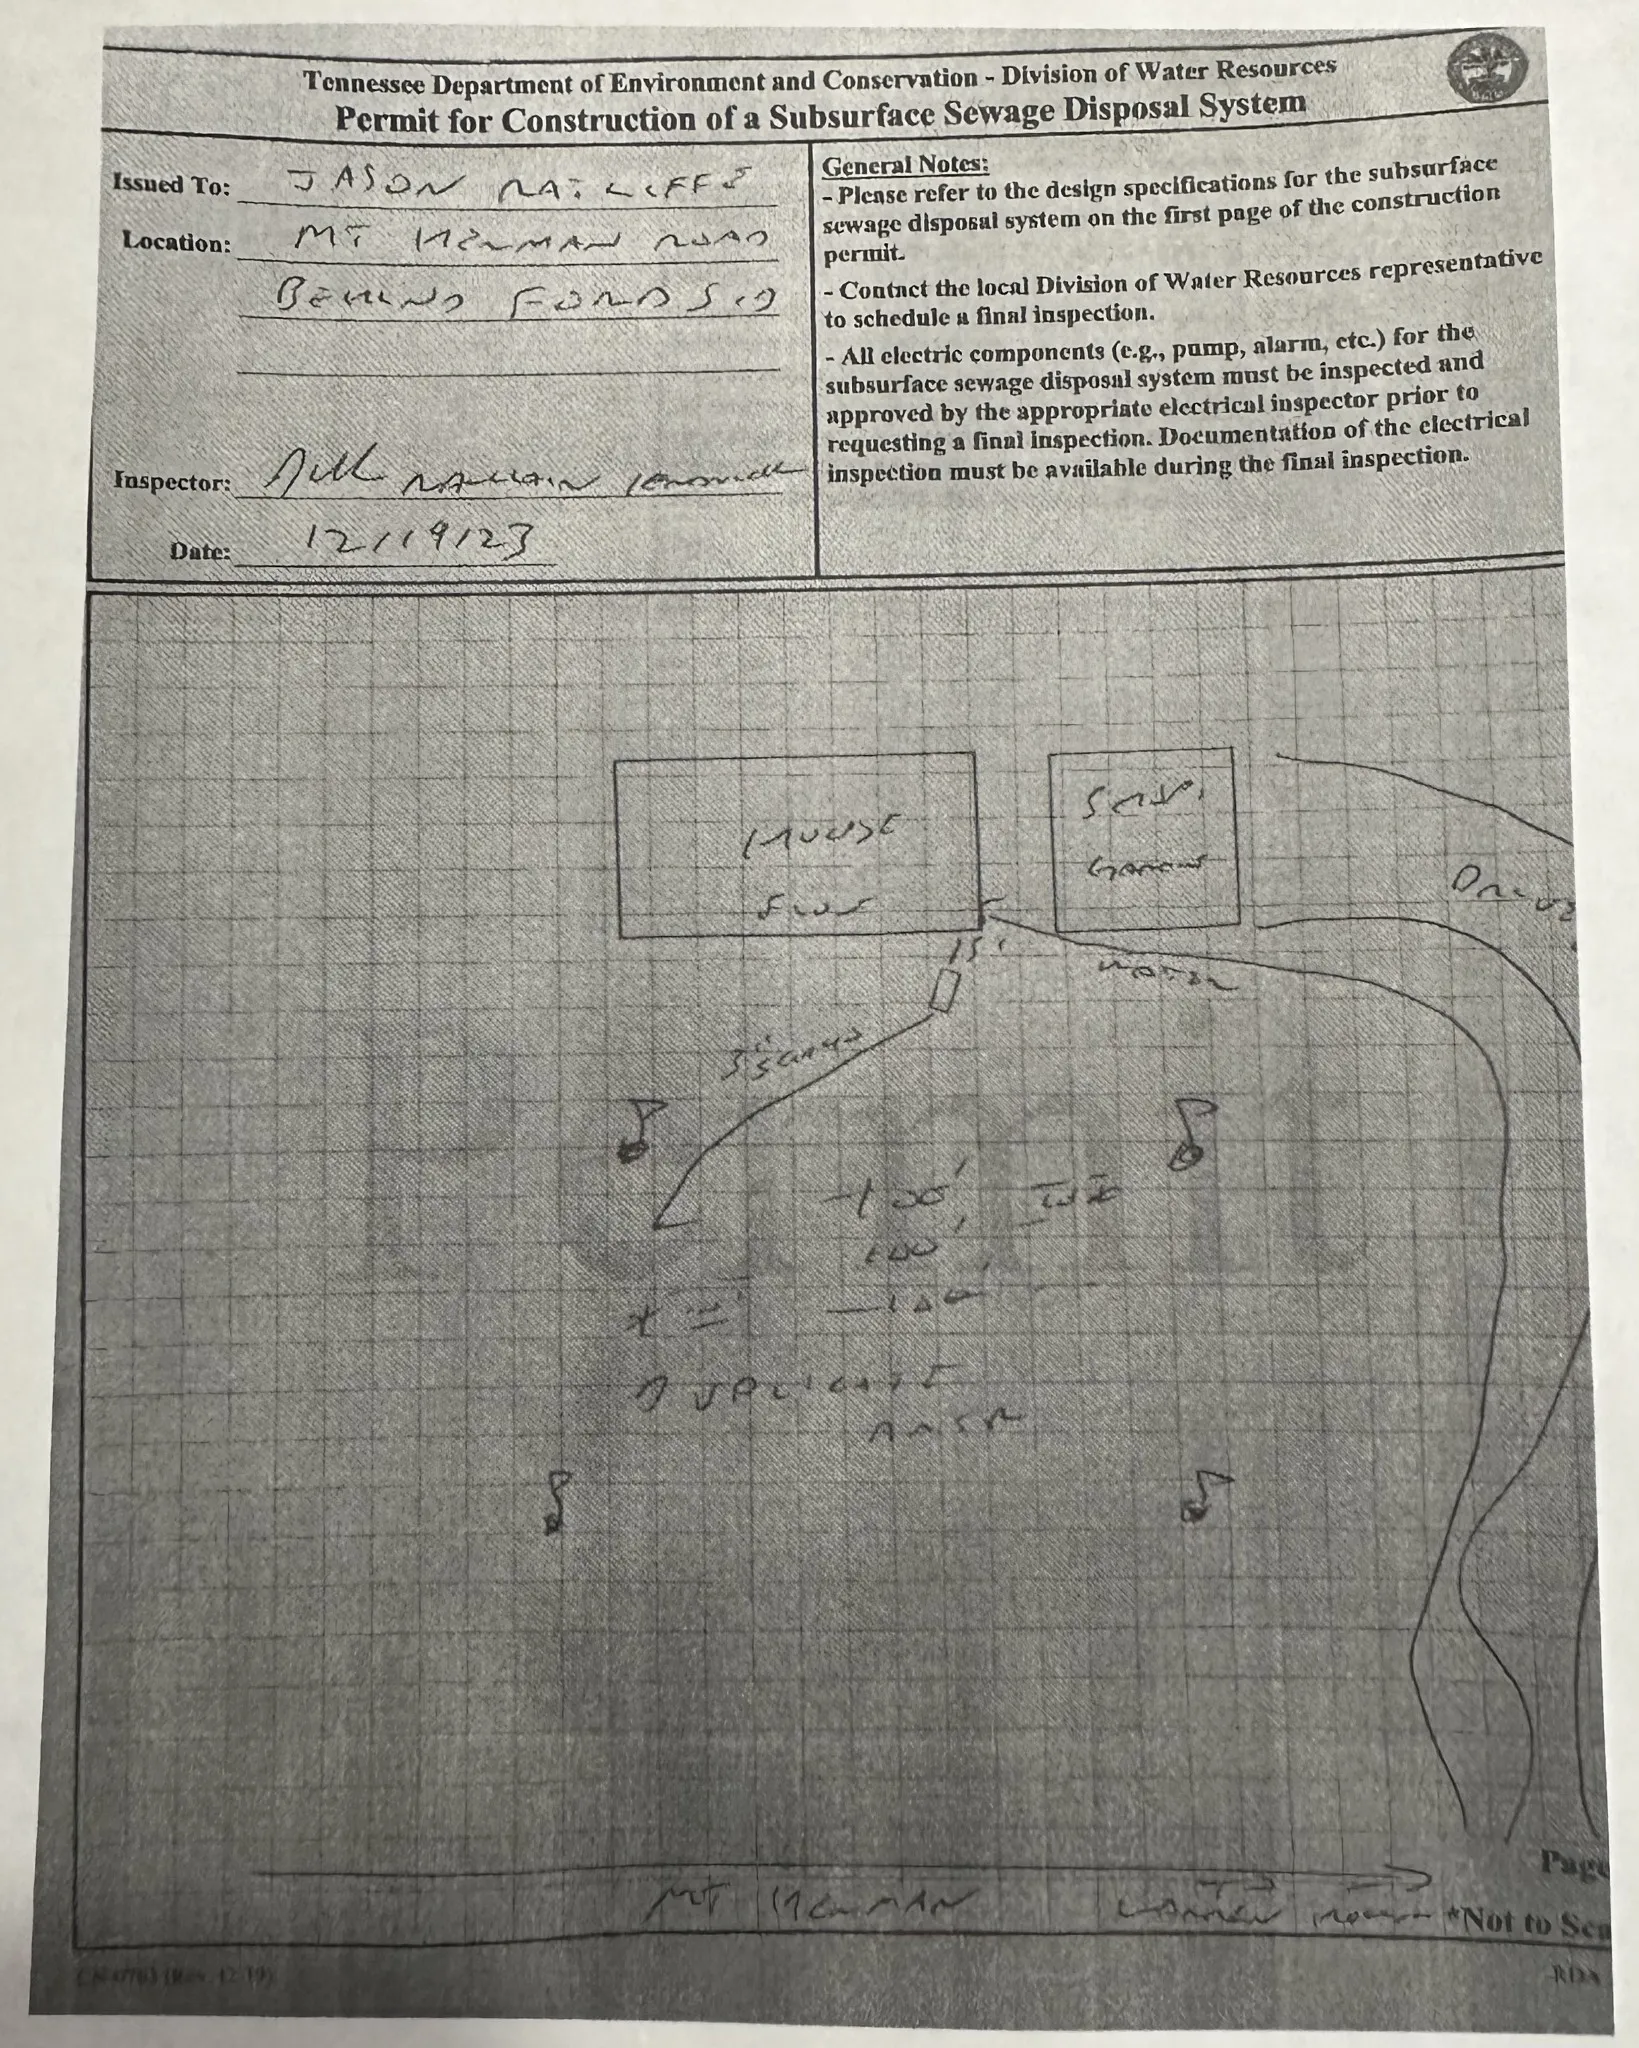 Tennessee Department of Environment and Conservation - Division of Water Resources
Permit for Construction of a Subsurface Sewage Disposal System
Issued To: JASON RATCLIFFE
Location: MT HERMAN ROAD
BEHIND FORDS
Inspector: NATHAN
Date: 12/19/23
General Notes:
- Please refer to the design specifications for the subsurface
sewage disposal system on the first page of the construction
permit.
- Contact the local Division of Water Resources representative
to schedule a final inspection.
- All electric components (e.g., pump, alarm, etc.) for the
subsurface sewage disposal system must be inspected and
approved by the appropriate electrical inspector prior to
requesting a final inspection. Documentation of the electrical
inspection must be available during the final inspection.
HOUSE
GARAGE
DRIVE
15'
WATER
100'
DUPLICATE
AREA
MT HERMAN
Page
*Not to Sca
RDA